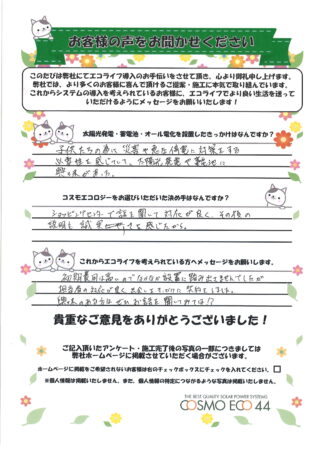 お客様の声をお聞かせください
このたびは弊社にてエコライフ導入のお手伝いをさせて頂き、心より御礼申し上げます。
弊社では、より多くのお客様に喜んで頂けるご提案・施工に本気で取り組んでいます。
これからシステムの導入を考えられているお客様に、エコライフでより良い生活を送って
いただけるようにメッセージをお願いいたします！
太陽光発電・蓄電池・オール電化を設置したきっかけはなんですか？
子供たちの為に災害や急な停電に対策する
必要性を感じていて、太陽光発電や蓄電池に
興味がありました。
コスモエコロジーをお選びいただいた決め手はなんですか？
ショッピングセンターで話を聞いて対応が良く、その後の
説明も誠実さを感じたから。
これからエコライフを考えられている方へメッセージをお願いします。
初期費用は高いのでなかなか設置に踏み出せませんでしたが
担当者の対応が良く
興味のある方はぜひお話を聞いてみては!?
貴重なご意見をありがとうございました！
ご記入頂いたアンケート・施工完了後の写真の一部につきましては
弊社ホームページに掲載させていただく場合がございます。
ホームページに掲載をご希望されないお客様は右のチェックボックスにチェックを入れてください。
※個人情報は掲載いたしません。また、個人情報の特定につながるような写真は掲載いたしません。
THE BEST QUALITY SOLAR POWER SYSTEMS
COSMO ECO 44